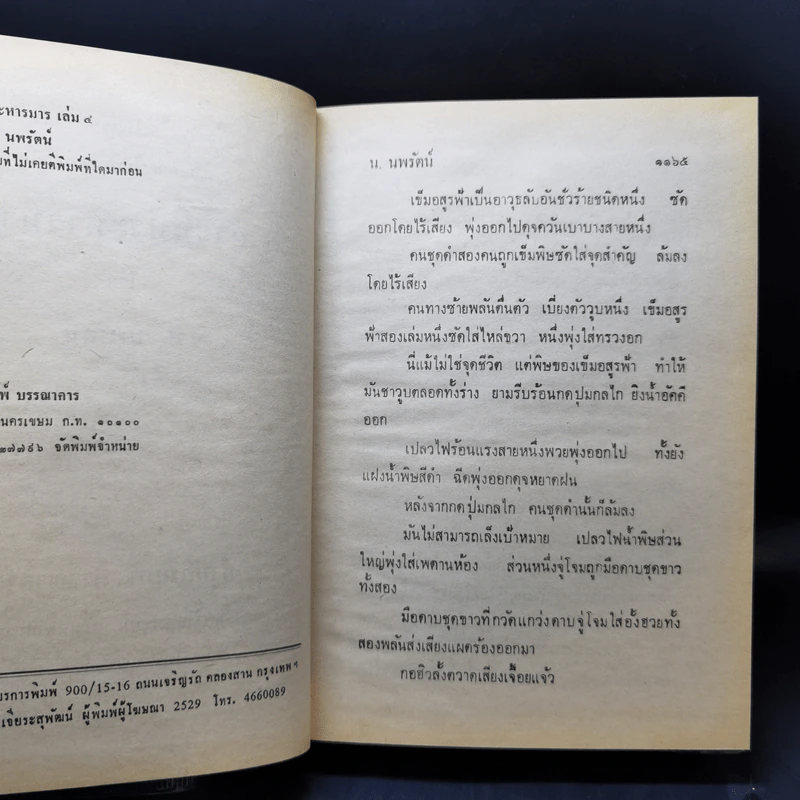 ะหารมาร เล่ม ๔
นพรัตน์
ที่ไม่เคยตีพิมพ์ที่ใดมาก่อน
พ์ บรรณาคาร
นครเขษม ก.ท. ๑๐๑๐๐
๒๗๗๙๖ จัดพิมพ์จำหน่าย
รการพิมพ์ 900/15-16 ถนนเจริญรัถ คลองสาน กรุงเทพฯ
เจียระสุพัฒน์ ผู้พิมพ์ผู้โฆษณา 2529 โทร. 4660089
น. นพรัตน์ ๑๑๖๕
เข็มอสูรฟ้าเป็นอาวุธลับอันชั่วร้ายชนิดหนึ่ง ซัด
ออกโดยไร้เสียง พุ่งออกไปดุจควันเบาบางสายหนึ่ง
คนชุดดำสองคนถูกเข็มพิษซัดใส่จุดสำคัญ ล้มลง
โดยไร้เสียง
คนทางซ้ายพลันตื่นตัว เบี่ยงตัววูบหนึ่ง เข็มอสูร
ฟ้าสองเล่มหนึ่งซัดใส่ไหล่ขวา หนึ่งพุ่งใส่ทรวงอก
นี่แม้ไม่ใช่จุดชีวิต แต่พิษของเข็มอสูรฟ้า ทำให้
มันชาวูบตลอดทั้งร่าง ยามรีบร้อนกดปุ่มกลไก ยิงน้ำอัคคี
ออก
เปลวไฟร้อนแรงสายหนึ่งพวยพุ่งออกไป ทั้งยัง
แฝงน้ำพิษสีดำ ฉีดพุ่งออกดุจหยาดฝน
หลังจากกดปุ่มกลไก คนชุดดำนั้นก็ล้มลง
มันไม่สามารถเล็งเป้าหมาย เปลวไฟน้ำพิษส่วน
ใหญ่พุ่งใส่เพดานห้อง ส่วนหนึ่งจู่โจมถูกมือดาบชุดขาว
ทั้งสอง
มือดาบชุดขาวที่กวัดแกว่งดาบจู่โจมใส่อั้งฮวยทั้ง
สองพลันส่งเสียงแผดร้องออกมา
กอฮิวลั้งตวาดเสียงเจื้อยแจ้ว